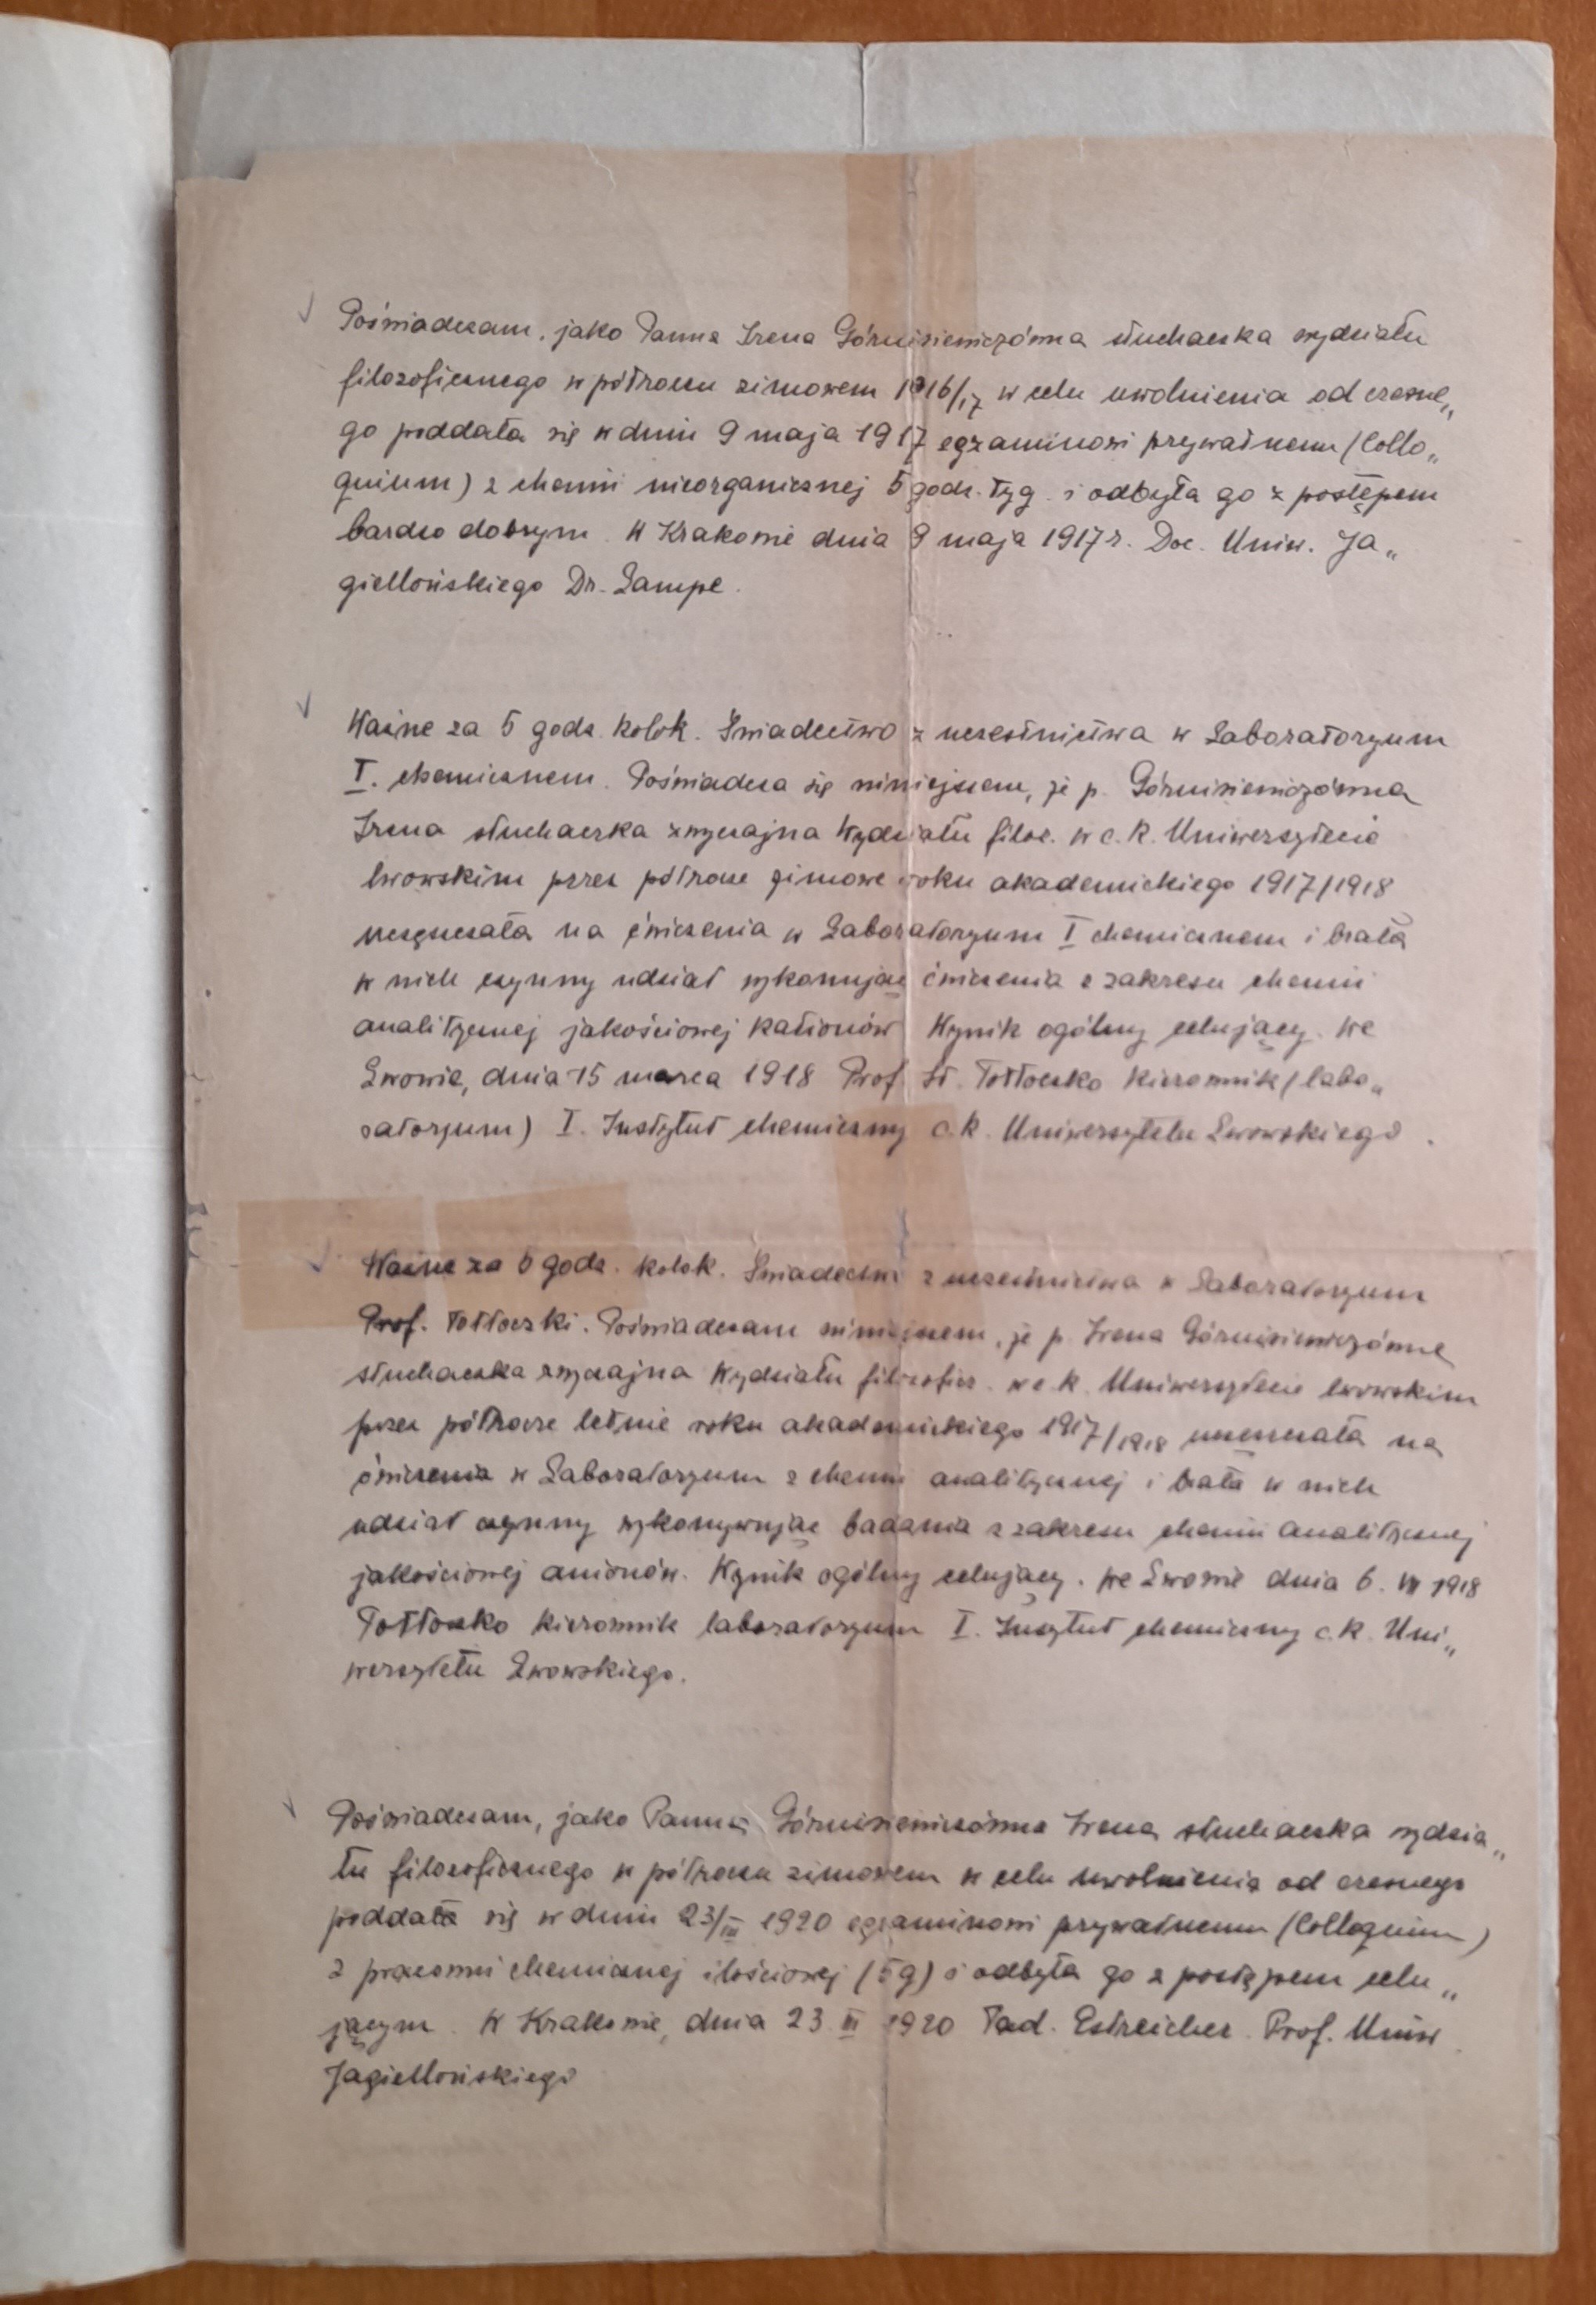 Poświadczam, jako Panna Irena Górnisiewiczówna słuchaczka wydziału
filozoficznego w półroczu zimowem 1916/17 w celu uwolnienia od czesne„
go poddała się w dniu 9 maja 1917 egzaminowi prywatnemu (Collo„
quium) z chemii nieorganicznej 5 godz. tyg. i odbyła go z postępem
bardzo dobrym. W Krakowie dnia 9 maja 1917 r. Doc. Uniw. Ja„
giellońskiego Dr. Lampe.
Ważne za 5 godz. kolok. Świadectwo z uczestnictwa w Laboratoryum
I. chemicznem. Poświadcza się niniejszem, że p. Górnisiewiczówna
Irena słuchaczka zwyczajna Wydziału filoz. w c. k. Uniwersytecie
lwowskim przez półrocze zimowe roku akademickiego 1917/1918
uczęszczała na ćwiczenia w Laboratoryum I chemicznem i brała
w nich czynny udział wykonując ćwiczenia z zakresu chemii
analitycznej jakościowej kationów Wynik ogólny celujący. We
Lwowie, dnia 15 marca 1918 Prof St. Tołłoczko kierownik (labo„
ratoryum) I. Instytut chemiczny c. k. Uniwersytetu Lwowskiego.
Ważne za 5 godz. kolok. Świadectwo z uczestnictwa w Laboratoryum
Prof. Tołłoczki. Poświadczam niniejszem, że p. Irena Górnisiewiczówna
słuchaczka zwyczajna Wydziału filozoficz. w c. k. Uniwersytecie lwowskim
przez półrocze letnie roku akademickiego 1917/1918 uczęszczała na
ćwiczenia w Laboratoryum z chemii analitycznej i brała w nich
udział czynny wykonywując badania z zakresu chemii analitycznej
jakościowej anionów. Wynik ogólny celujący. We Lwowie dnia 6. VII 1918
Tołłoczko kierownik laboratoryum I. Instytut chemiczny c. k. Uni„
wersytetu Lwowskiego.
Poświadczam, jako Panna Górnisiewiczówna Irena słuchaczka wydzia„
łu filozoficznego w półroczu zimowem w celu uwolnienia od czesnego
poddała się w dniu 23/III 1920 egzaminowi prywatnemu (Colloquium)
z pracowni chemicznej ilościowej (5 g) i odbyła go z postępem celu„
jącym. W Krakowie, dnia 23 III 1920 Tad. Estreicher. Prof. Uniw
Jagiellońskiego